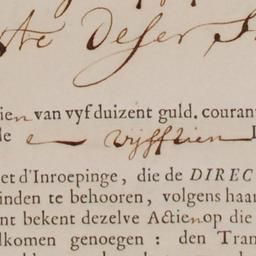 te Deser S
ien van vyf duizent guld. courant
le e vijfftien
et d'Inroepinge, die de DIREC
inden te behooren, volgens haar
nt bekent dezelve Actien op die
lkomen genoegen: den Tran